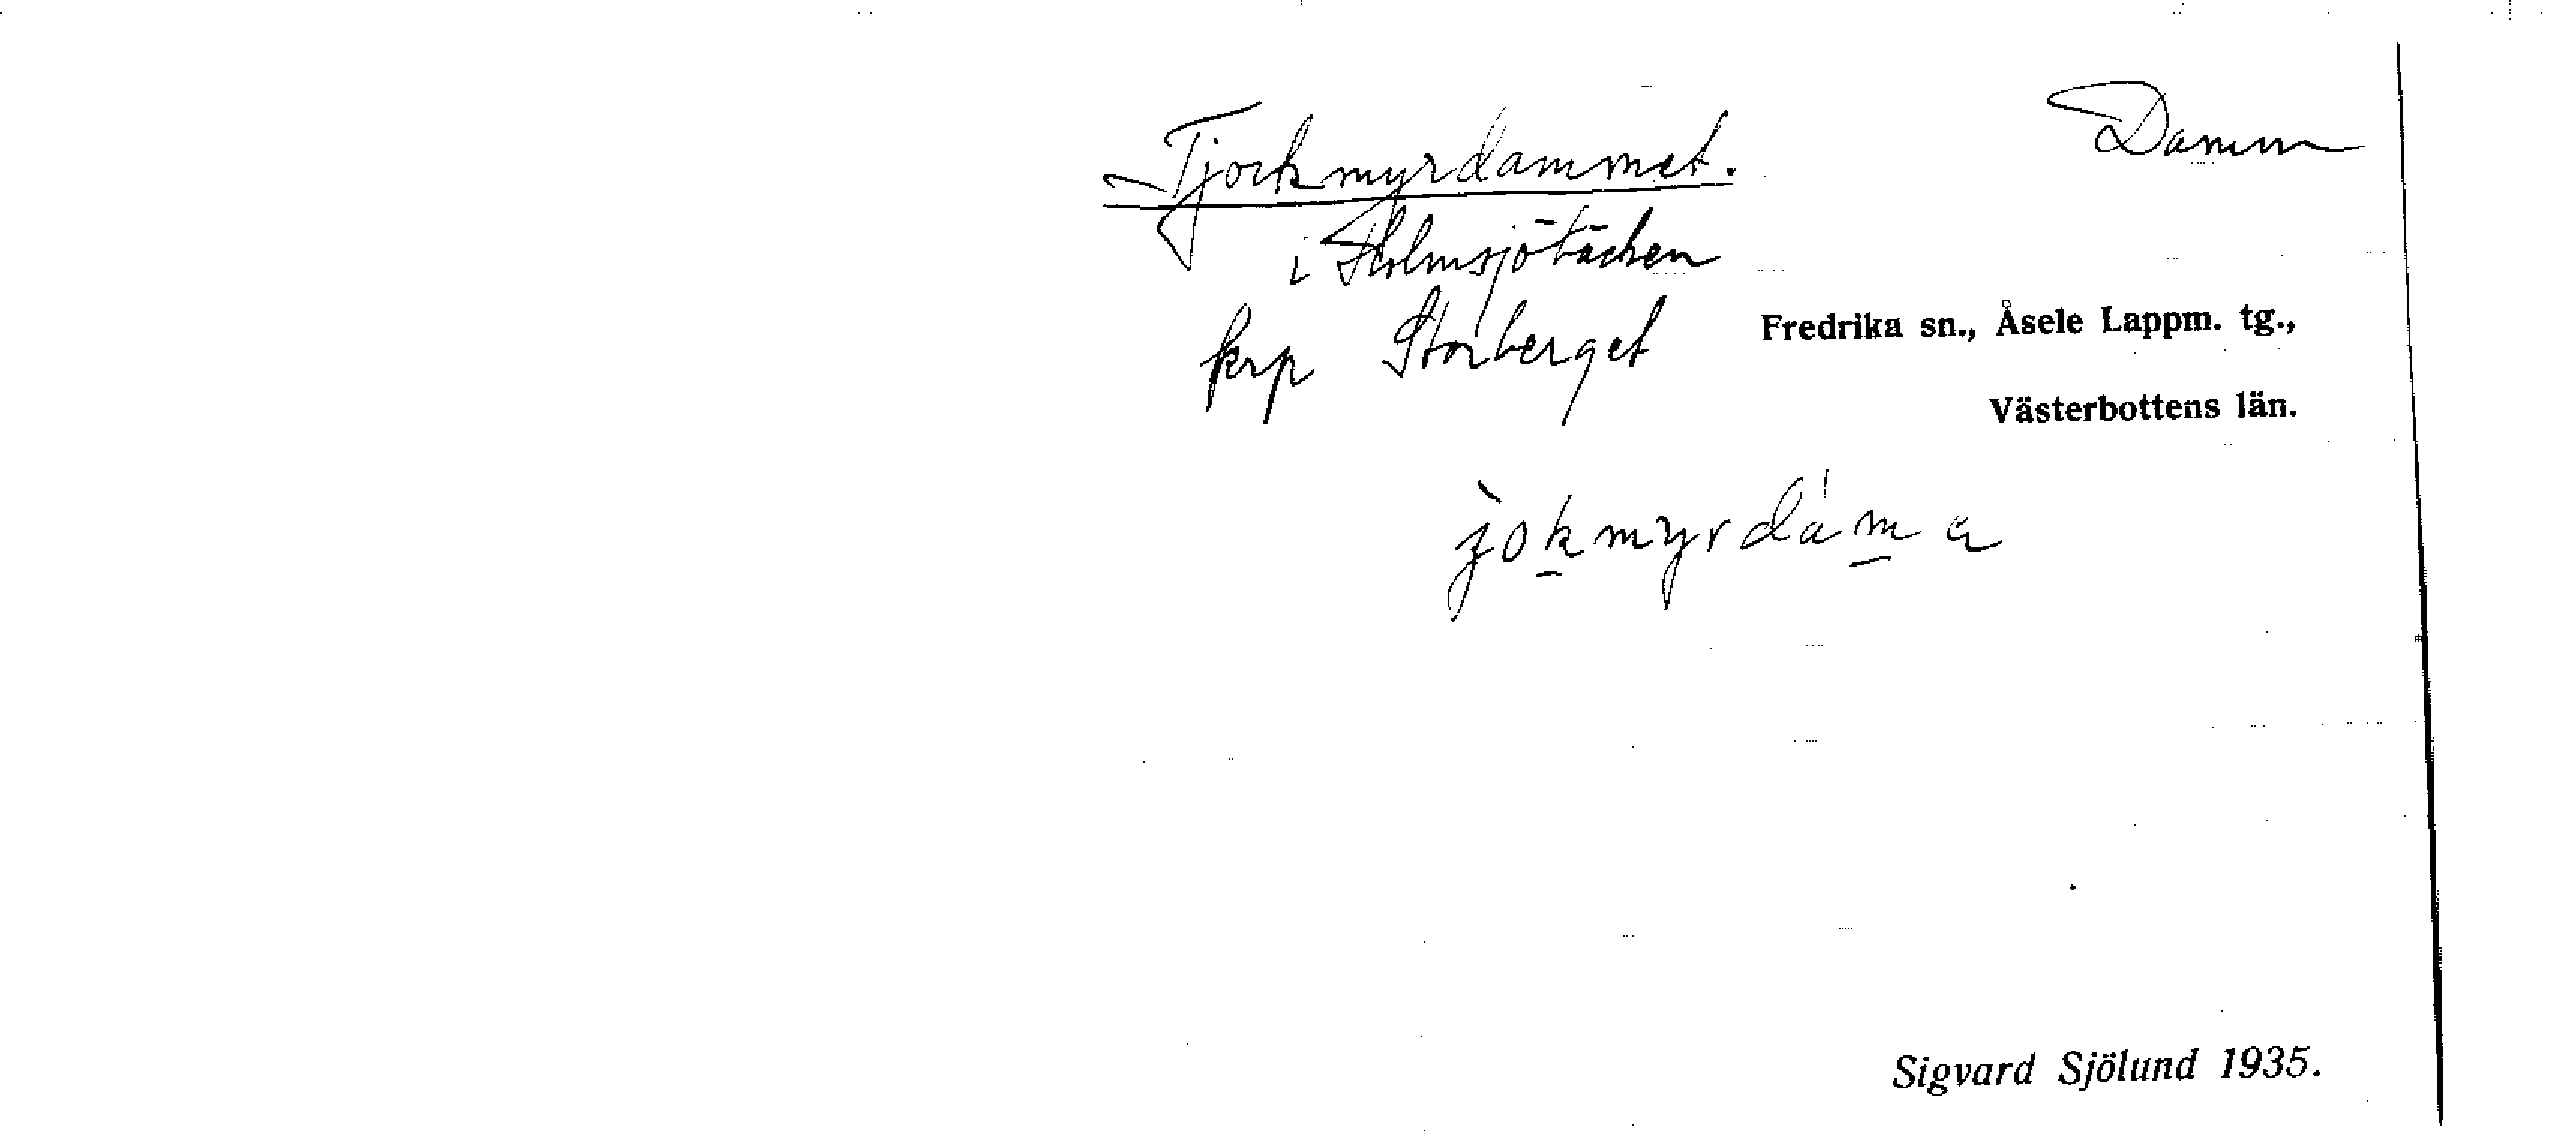 Tjockmyrdammet.
Damm
i Holmsjöbäcken
krp Storberget
Fredrika sn., Åsele Lappm. tg.,
Västerbottens län.
Sigvard Sjölund 1935.